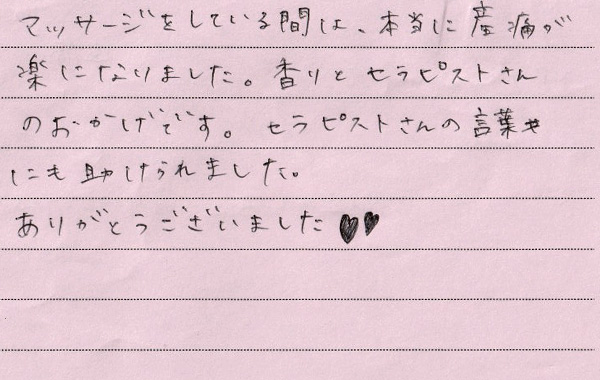 マッサージをしている間は、本当に産痛が
楽になりました。香りとセラピストさん
のおかげです。セラピストさんの言葉
にも助けられました。
ありがとうございました♥♥